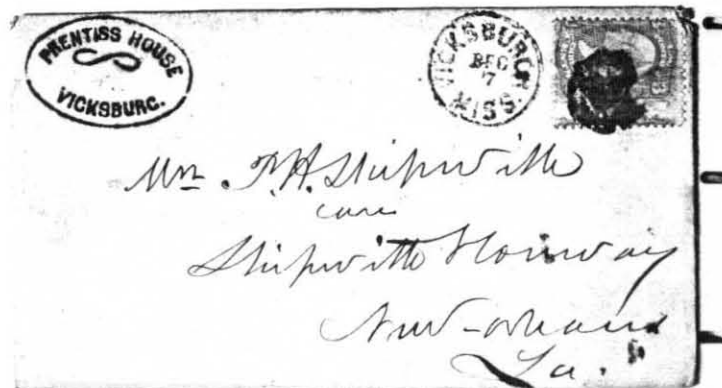 PRENTISS HOUSE
VICKSBURG.
VICKSBURGH
DEC
7
MISS.
Mr. P.H. Skipwith
care
Skipwith
New-Orleans
La.